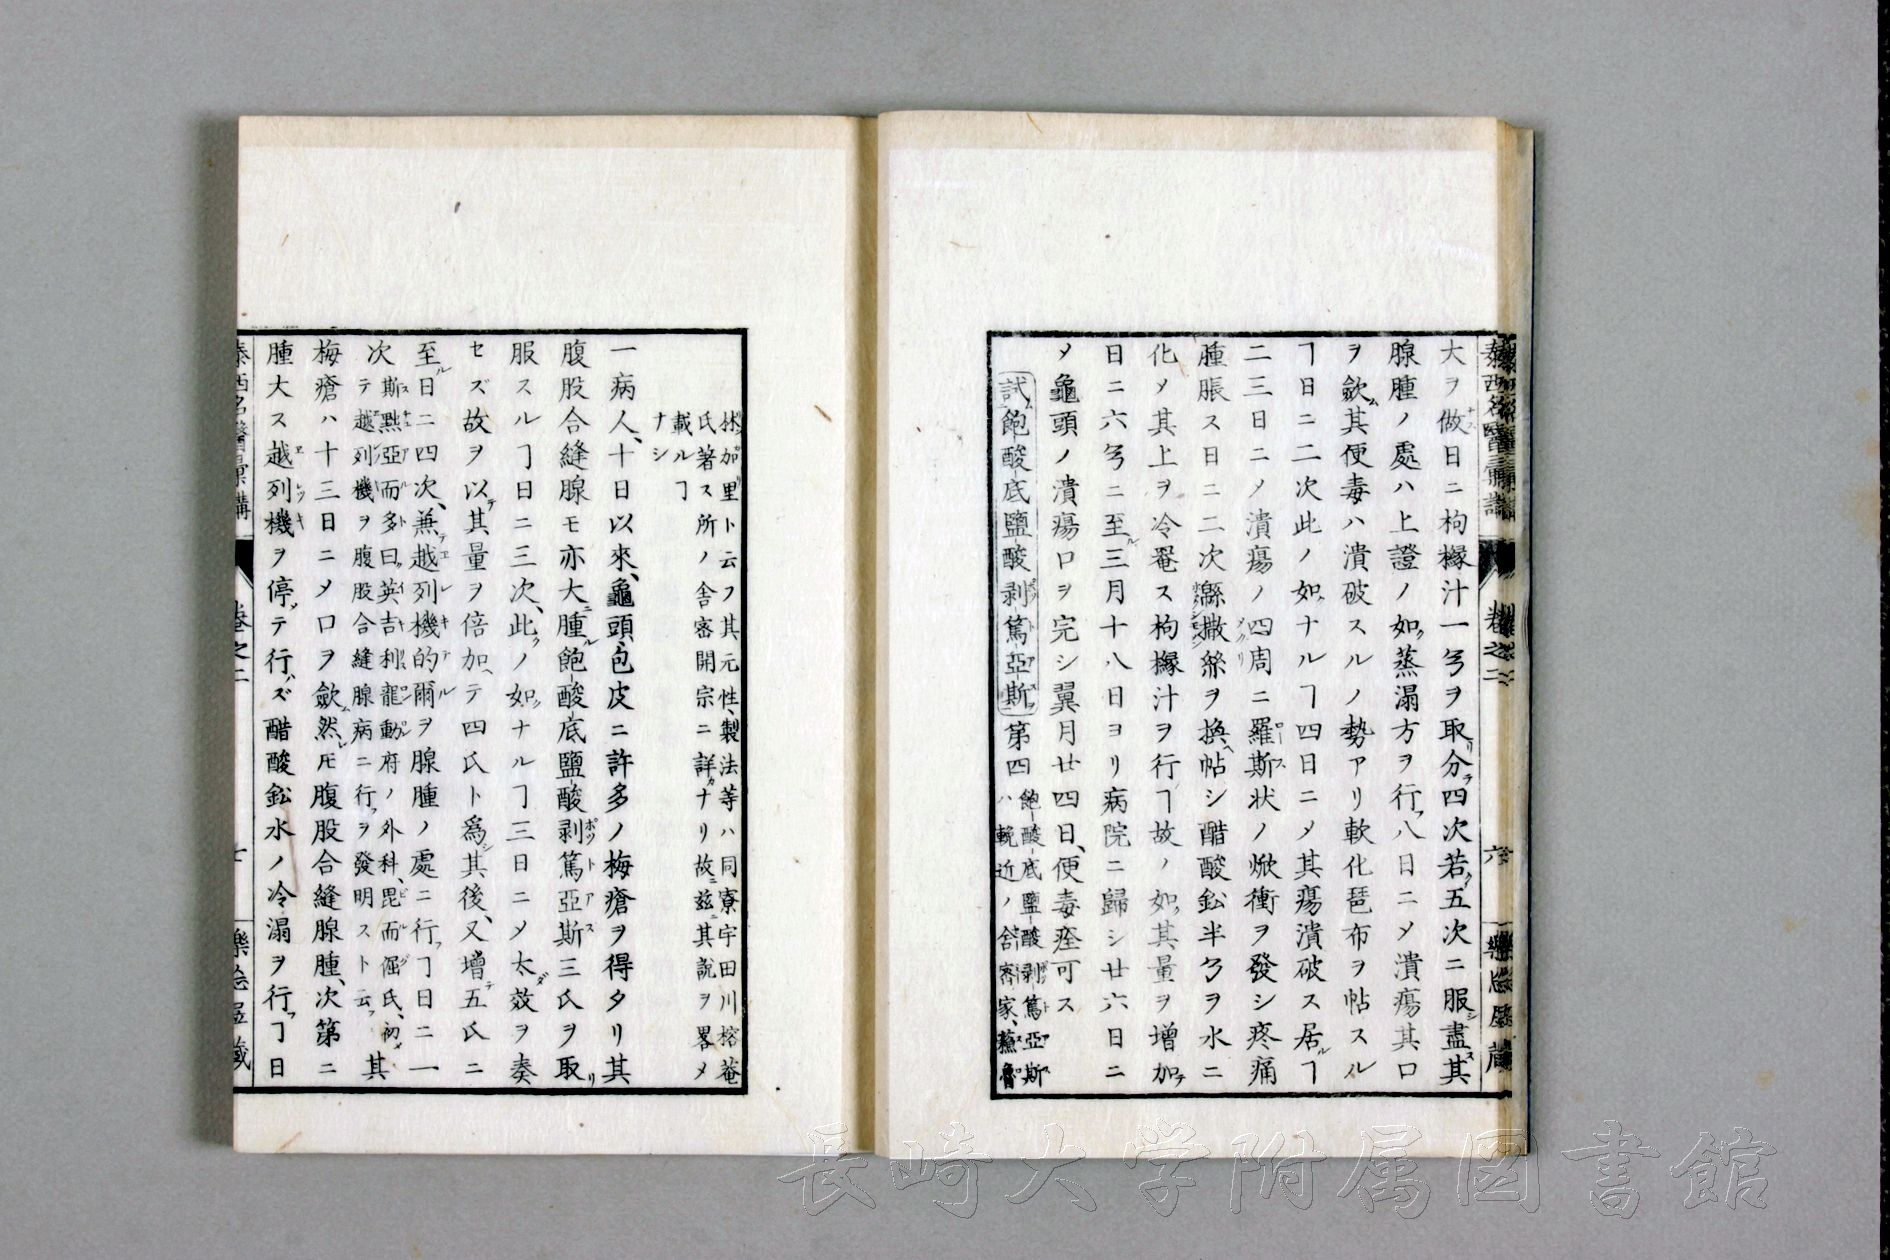 大ヲ做日ニ枸櫞汁一弖ヲ取分四次若五次ニ服盡其
腺腫ノ處ハ上證ノ如蒸溻方ヲ行八日ニメ潰瘍其口
ヲ歛其便毒ハ潰破スルノ勢アリ軟化琶布ヲ帖スル
ヿ日ニ二次此ノ如ナルヿ四日ニメ其瘍潰破ス居ヿ
二三日ニメ潰瘍ノ四周ニ羅斯状ノ焮衝ヲ發シ疼痛
腫脹ス日ニ二次繇撒絲ヲ換帖シ醋酸鈆半弖ヲ水ニ
化メ其上ヲ冷罨ス枸櫞汁ヲ行ヿ故ノ如其量ヲ増加
日ニ六弖ニ至三月十八日ヨリ病院ニ歸シ廿六日ニ
メ龜頭ノ潰瘍口ヲ完シ翼月廿四日、便毒痊可ス
試飽酸底鹽酸剥篤亞斯第四飽酸底鹽酸剥篤亞斯
ハ輓近ノ舎密家、蘓魯
林加里ト云フ其元性、製法等ハ同寮宇田川榕菴
氏著ス所ノ舎密開宗ニ詳ナリ故ニ茲ニ其説ヲ畧メ
載ルヿ
ナシ
一病人、十日以來、龜頭、包皮ニ許多ノ梅瘡ヲ得タリ其
腹股合縫腺モ亦大ニ腫ル飽酸底鹽酸剥篤亞斯三氏ヲ取
服スルヿ日ニ三次、此ノ如ナルヿ三日ニメ太效ヲ奏
セズ故ヲ以其量ヲ倍加、テ四氏ト為其後、又増五氏ニ
至日ニ四次、兼越列機的爾ヲ腺腫ノ處ニ行ヿ日ニ一
次斯㸃亞而多曰、英吉利龍動府ノ外科、毘而倔氏、初メ
テ越列機ヲ腹股合縫腺病ニ行ヲ發明スト云フ其
梅瘡ハ十三日ニメ口ヲ歛然ㇾ𪜈腹股合縫腺腫、次第ニ
腫大ス越列機ヲ停テ行ズ醋酸鈆水ノ冷溻ヲ行ヿ日
泰西名醫彙講
卷之二
六
七
長崎大学附属図書館